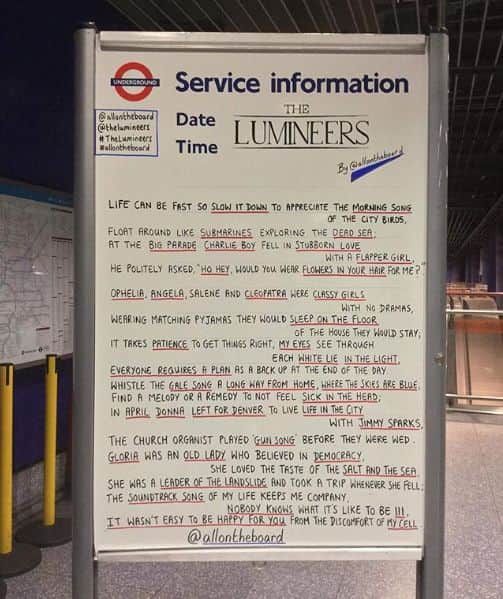 UNDERGROUND
Service information
@allontheboard
@thelumineers
#TheLumineers
#allontheboard
Date
Time
THE
LUMINEERS
By @allontheboard
LIFE CAN BE FAST SO SLOW IT DOWN TO APPRECIATE THE MORNING SONG
OF THE CITY BIRDS,
FLOAT AROUND LIKE SUBMARINES EXPLORING THE DEAD SEA;
AT THE BIG PARADE CHARLIE BOY FELL IN STUBBORN LOVE
WITH A FLAPPER GIRL,
HE POLITELY ASKED, "HO HEY, WOULD YOU WEAR FLOWERS IN YOUR HAIR FOR ME?"
OPHELIA, ANGELA, SALENE AND CLEOPATRA WERE CLASSY GIRLS
WITH NO DRAMAS,
WEARING MATCHING PYJAMAS THEY WOULD SLEEP ON THE FLOOR
OF THE HOUSE THEY WOULD STAY;
IT TAKES PATIENCE TO GET THINGS RIGHT, MY EYES SEE THROUGH
EACH WHITE LIE IN THE LIGHT,
EVERYONE REQUIRES A PLAN AS A BACK UP AT THE END OF THE DAY.
WHISTLE THE GALE SONG A LONG WAY FROM HOME, WHERE THE SKIES ARE BLUE;
FIND A MELODY OR A REMEDY TO NOT FEEL SICK IN THE HEAD;
IN APRIL DONNA LEFT FOR DENVER TO LIVE LIFE IN THE CITY
WITH JIMMY SPARKS,
THE CHURCH ORGANIST PLAYED 'GUN SONG' BEFORE THEY WERE WED.
GLORIA WAS AN OLD LADY WHO BELIEVED IN DEMOCRACY,
SHE LOVED THE TASTE OF THE SALT AND THE SEA.
SHE WAS A LEADER OF THE LANDSLIDE AND TOOK A TRIP WHENEVER SHE FELL;
THE SOUNDTRACK SONG OF MY LIFE KEEPS ME COMPANY,
NOBODY KNOWS WHAT IT'S LIKE TO BE III,
IT WASN'T EASY TO BE HAPPY FOR YOU FROM THE DISCOMFORT OF MY CELL
@allontheboard